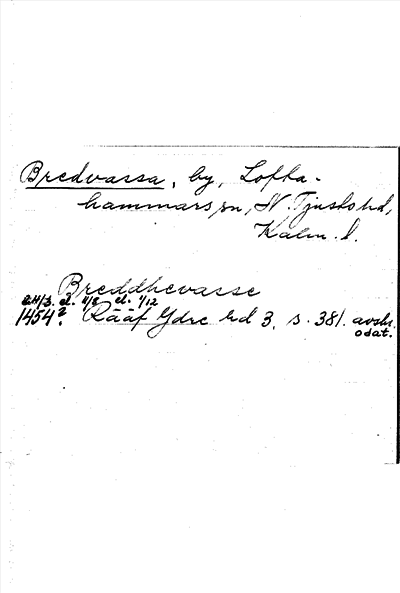 Bredvassa, by, Lofta-
hammars sn, N. Tjusts hd,
Kalm. l.
Breddhevasse
24/3. el. 1/8 el. 1/12
1454? Rääf Ydre hd 3, s. 381. avskr.
odat.